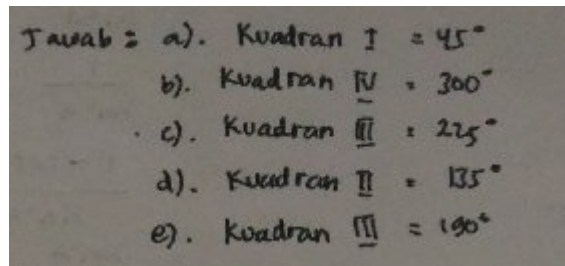 Jawab : a). Kuadran I = 45°
b). Kuadran IV = 300°
c). Kuadran III = 225°
d). Kuadran II = 135°
e). Kuadran III = 190°